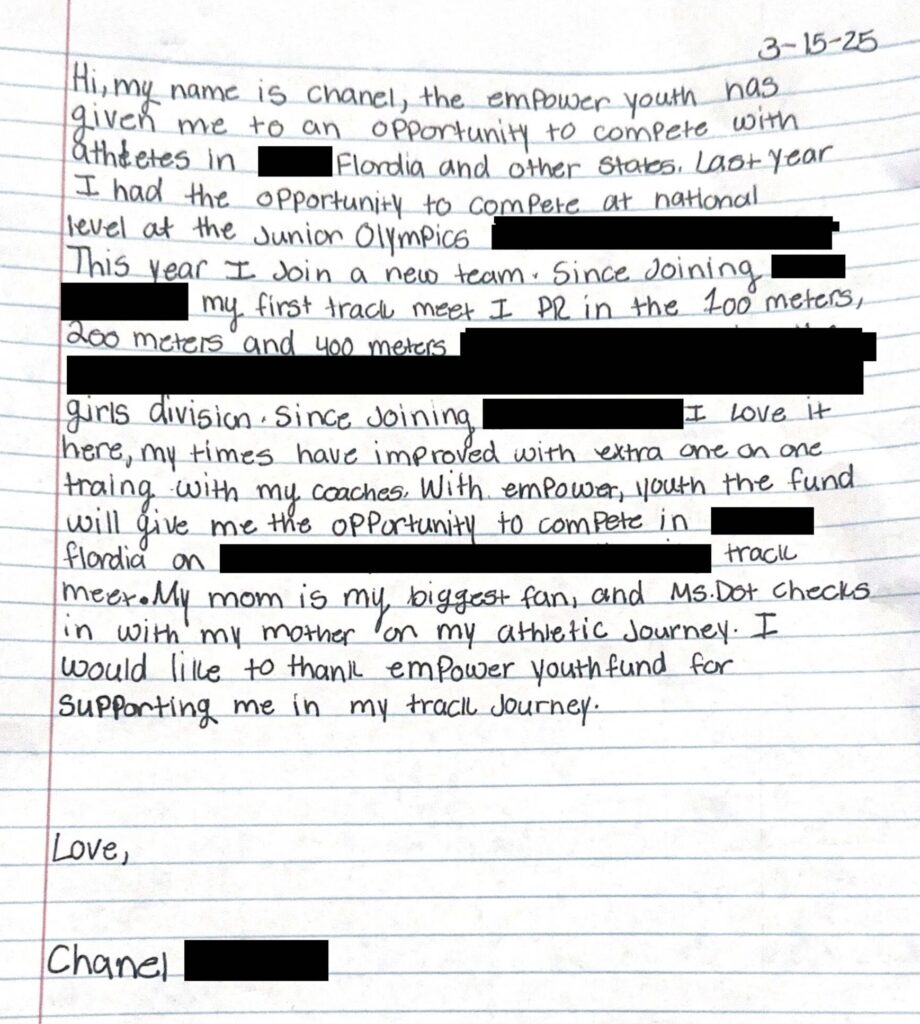 3-15-25
Hi, my name is chanel, the empower youth has
given me to an opportunity to compete with
athletes in Flordia and other states. Last year
I had the opportunity to compete at national
level at the Junior Olympics
This year I Join a new team. Since Joining
my first track meet I PR in the 100 meters,
200 meters and 400 meters
girls division. Since Joining I love it
here, my times have improved with extra one on one
traing with my coaches. With empower, youth the fund
will give me the opportunity to compete in
flordia on track
meet. My mom is my biggest fan, and Ms. Dot checks
in with my mother on my athletic Journey. I
would like to thank empower youthfund for
supporting me in my track Journey.
Love,
Chanel